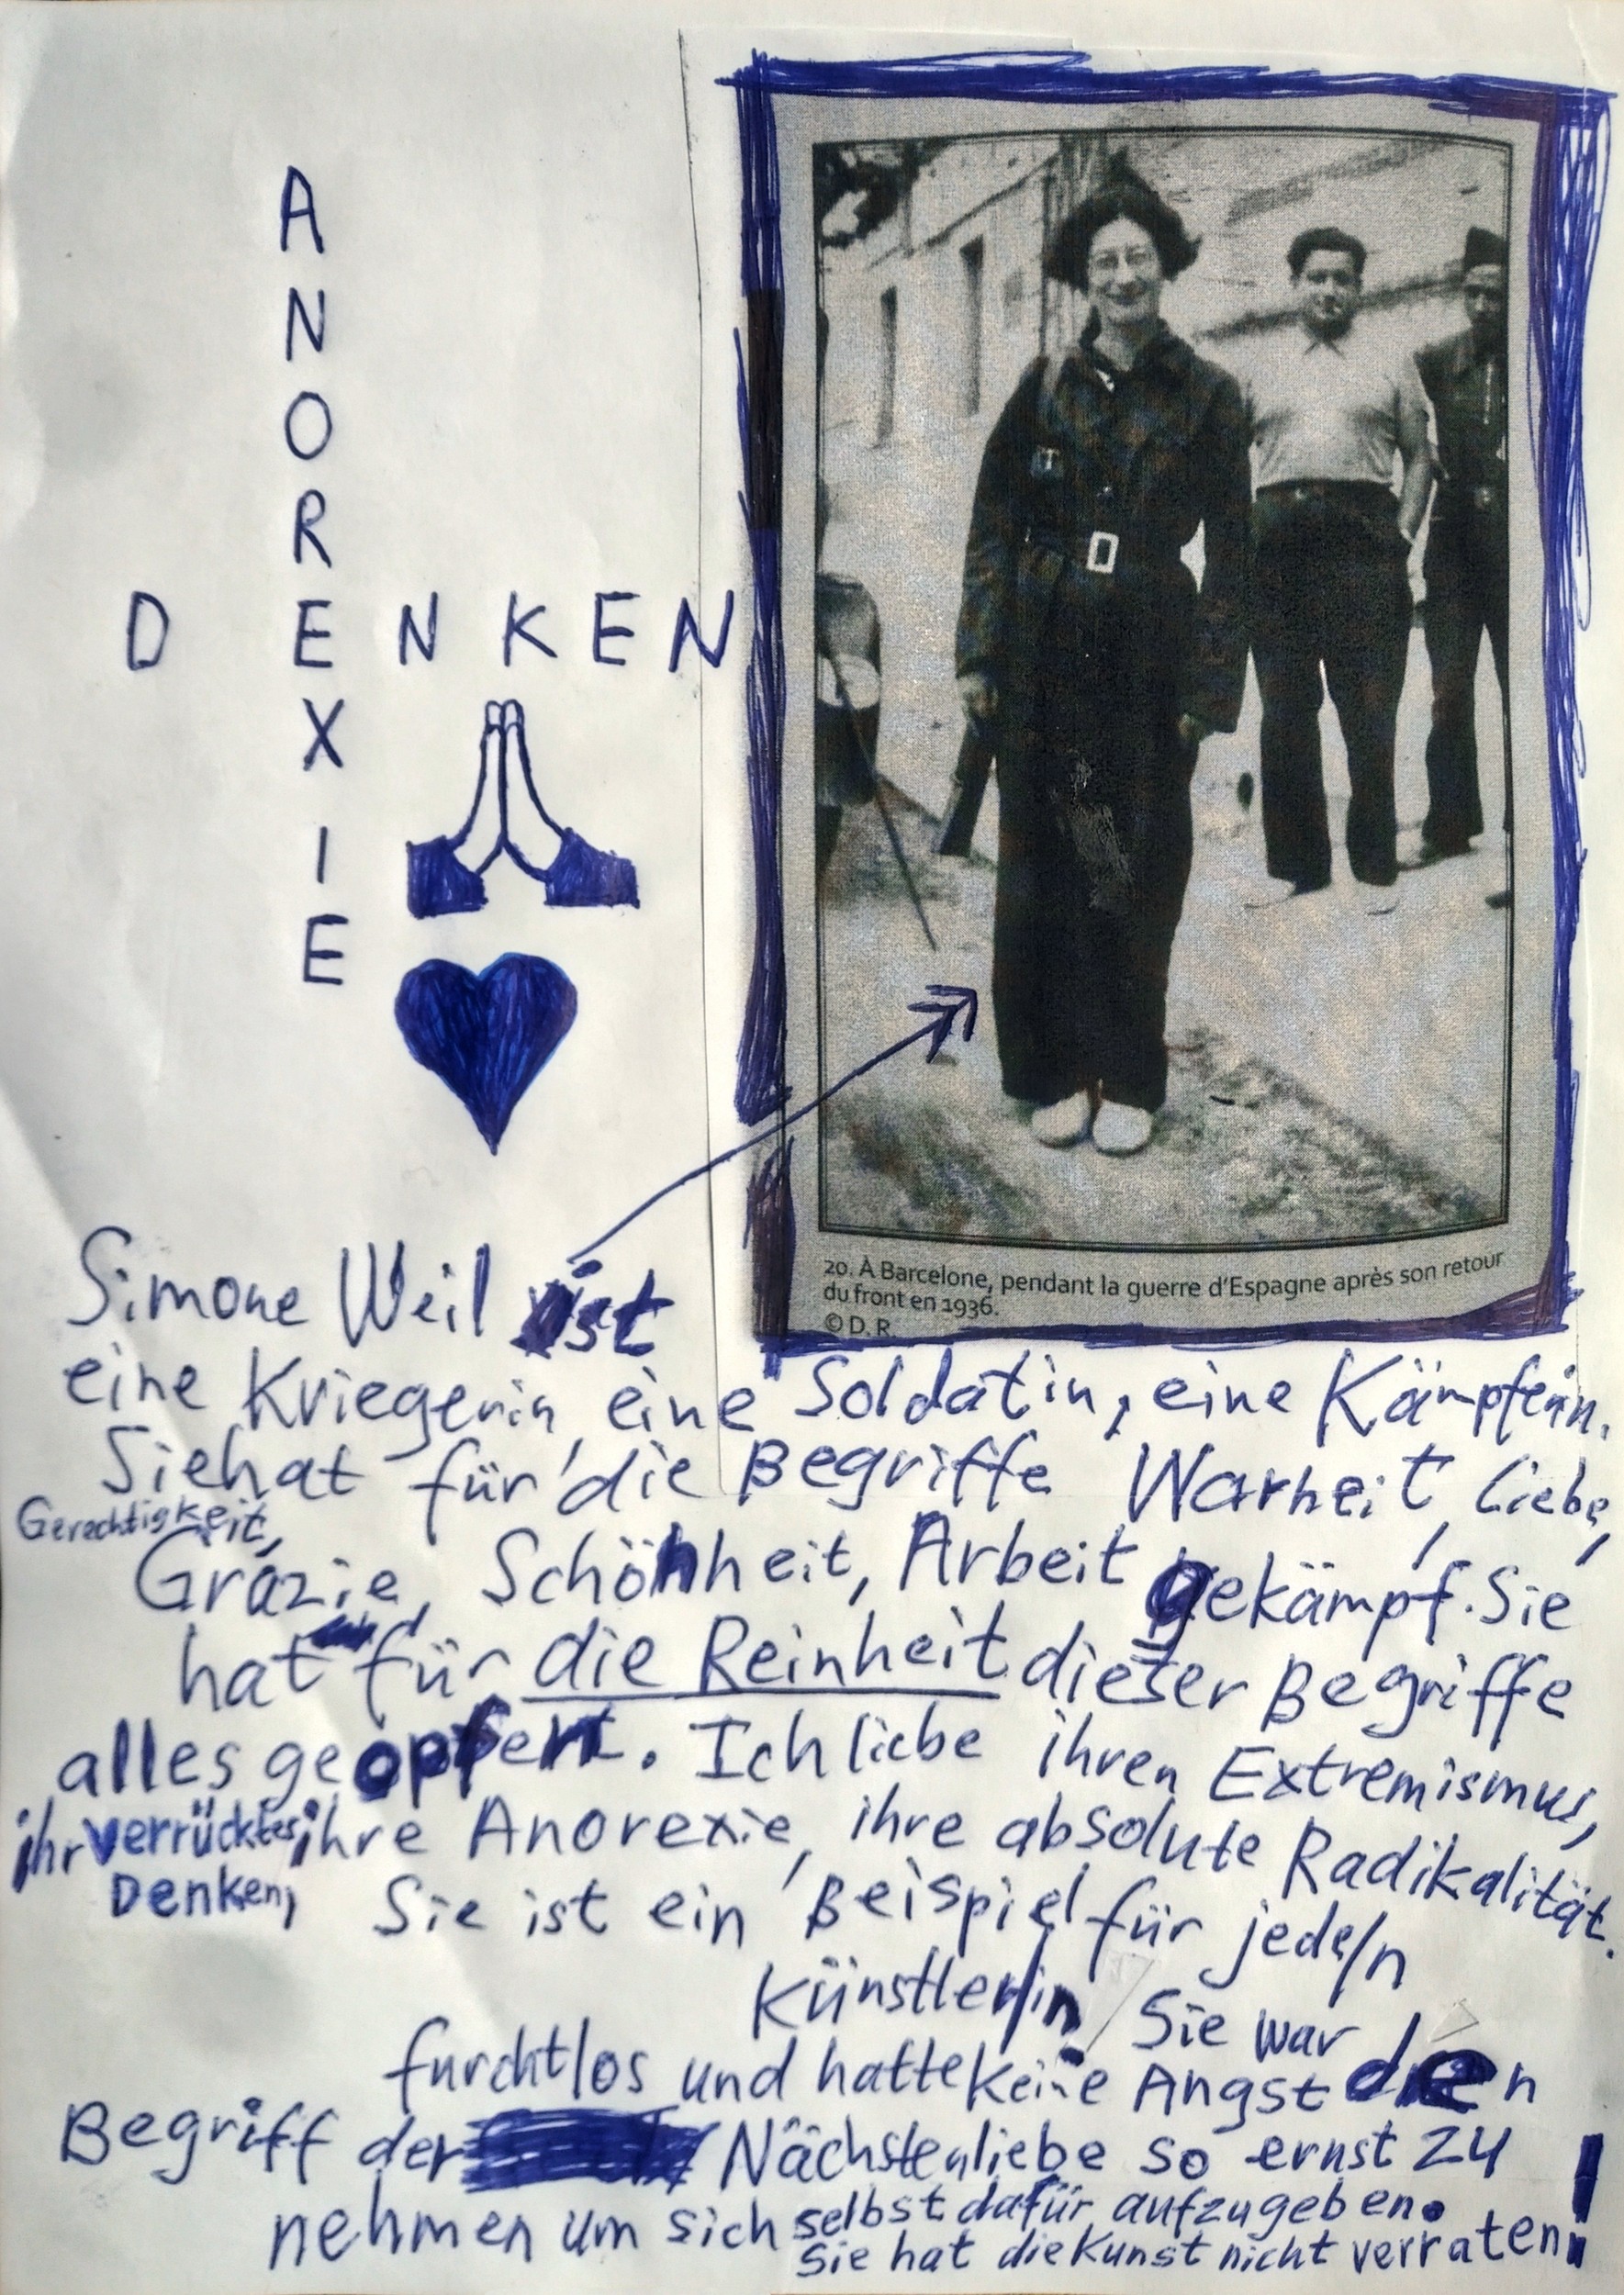 ANOREXIE
DENKEN
20. À Barcelone, pendant la guerre d'Espagne après son retour
du front en 1936.
© D. R.
Simone Weil ist
eine Kriegerin, eine Soldatin, eine Kämpferin.
Sie hat für die Begriffe Warheit, Liebe,
Gerechtigkeit,
Grazie, Schönheit, Arbeit gekämpf. Sie
hat für die Reinheit dieser Begriffe
alles geopfert. Ich liebe ihren Extremismus,
ihr verrücktes Denken, ihre Anorexie, ihre absolute Radikalität.
Sie ist ein Beispiel für jede/n
Künstler/in. Sie war
furchtlos und hatte keine Angst den
Begriff der Nächstenliebe so ernst zu
nehmen um sich selbst dafür aufzugeben.
Sie hat die Kunst nicht verraten!